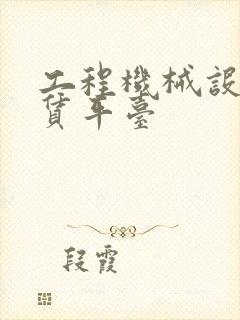 工程機械設
賃平臺
段霞